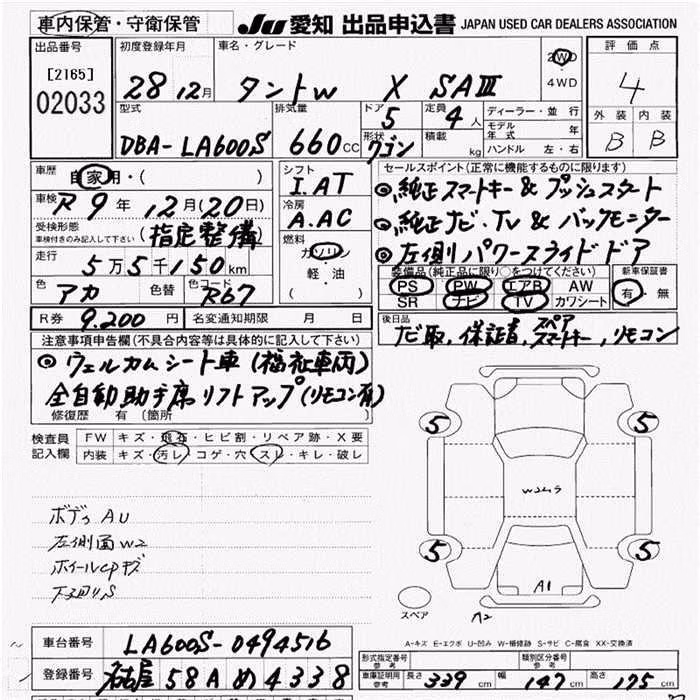 車内保管・守衛保管
JU 愛知 出品申込書 JAPAN USED CAR DEALERS ASSOCIATION
出品番号 初度登録年月 車名・グレード 2WD ・ 4WD 評価点
[2165]
02033 28 12月 タントW X SAⅢ 4
型式 排気量 ドア 定員 ディーラー・並行 外装 内装
DBA-LA600S 660cc 5 4人 モデル年式 年 B B
形状 ワゴン 積載 kg ハンドル 左・右
車歴 自家用・( ) シフト I.AT
車検 R9年12月(20日) 冷房 A.AC
受検形態 車検付きのみ記入して下さい (指定整備)
走行 5万5千150km 燃料 ガソリン・軽・油
色 アカ 色替 色コード R67
R券 9.200円 名変通知期限 月 日
セールスポイント(正常に機能するものに限ります)
◎純正スマートキー&プッシュスタート
◎純正ナビ・TV&バックモニター
◎左側パワースライドドア
装備品(純正品に限り○をつけてください) 新車保証書
PS PW エアB AW 有・無
SR ナビ TV カワシート
後日品
ナビ取,保証書,スペアスマートキー,リモコン
注意事項申告欄(不具合内容等は具体的に記入して下さい)
◎ウェルカムシート車(福祉車両)
全自動助手席リフトアップ(リモコン有)
修復歴 有(箇所 )
検査員記入欄 FW キズ・飛石・ヒビ割・リペア跡・X要
内装 キズ・汚レ・コゲ・穴・スレ・キレ・破レ
ボディAU
左側面W2
ホイールCPキズ
下廻りS
5 5
W2ムラ
5 5
A1
スペア A2
A-キズ E-エクボ U-凹み W-補修跡 S-サビ C-腐食 XX-交換済
車台番号 LA600S-0494516
登録番号 名古屋 58A め 4338
形式指定番号 参考 類別区分番号 参考
車庫証明用 参考 長さ 339cm 幅 147cm 高さ 175cm